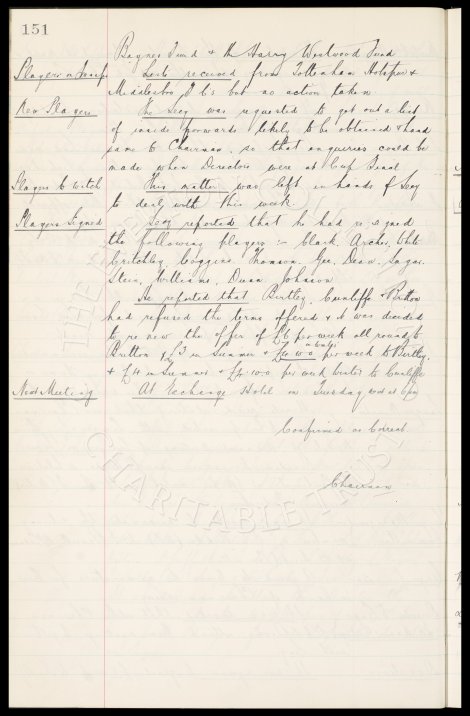 151
Baynes Fund & the Harry Westwood Fund
Players on Transfer
Lists received from Tottenham Hotspur &
Middlesbro F.C's but no action taken
New Players
The Secy was requested to get out a list
of inside forwards likely to be obtained & hand
same to Chairman, so that enquiries could be
made when Directors were at Cup Final
Players to Watch
This matter was left in hands of Secy
to deal with this week
Players Signed
Secy reported that he had re-signed
the following players :- Clark, Archer, White
Critchley, Coggins, Thomson, Gee, Dean, Sagar,
Stein, Williams, Dunn, Johnson
He reported that Bentley, Cunliffe & Britton
had refused the terms offered & it was decided
to re new the offer of £6 per week all round to
Britton, £3 in Summer & £4 10 0 per week to Bentley.
in Winter
& £4 in Summer & £4 10 0 per week Winter to Cunliffe
Next Meeting
At Exchange Hotel on Tuesday next at 6pm
Confirmed as Correct
Chairman
THE
CHARITABLE TRUST